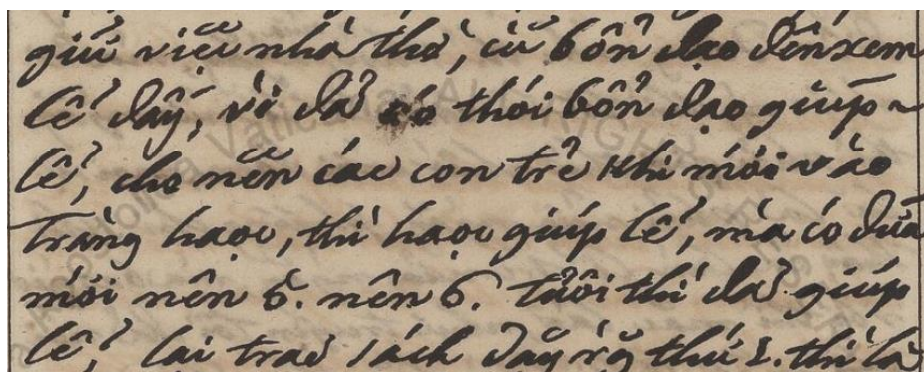 giữ việc nhà thờ, cũ bổn đạo đến xem
lễ đấy, vì đã có thói bổn đạo giúp
lễ, cho nên các con trẻ khi mới vào
tràng haọc, thì haọc giúp lễ, mà có đứa
mới nên 5. nên 6. tuổi thì đã giúp
lễ, lại trao sách dạy rằng thứ 1. thì là